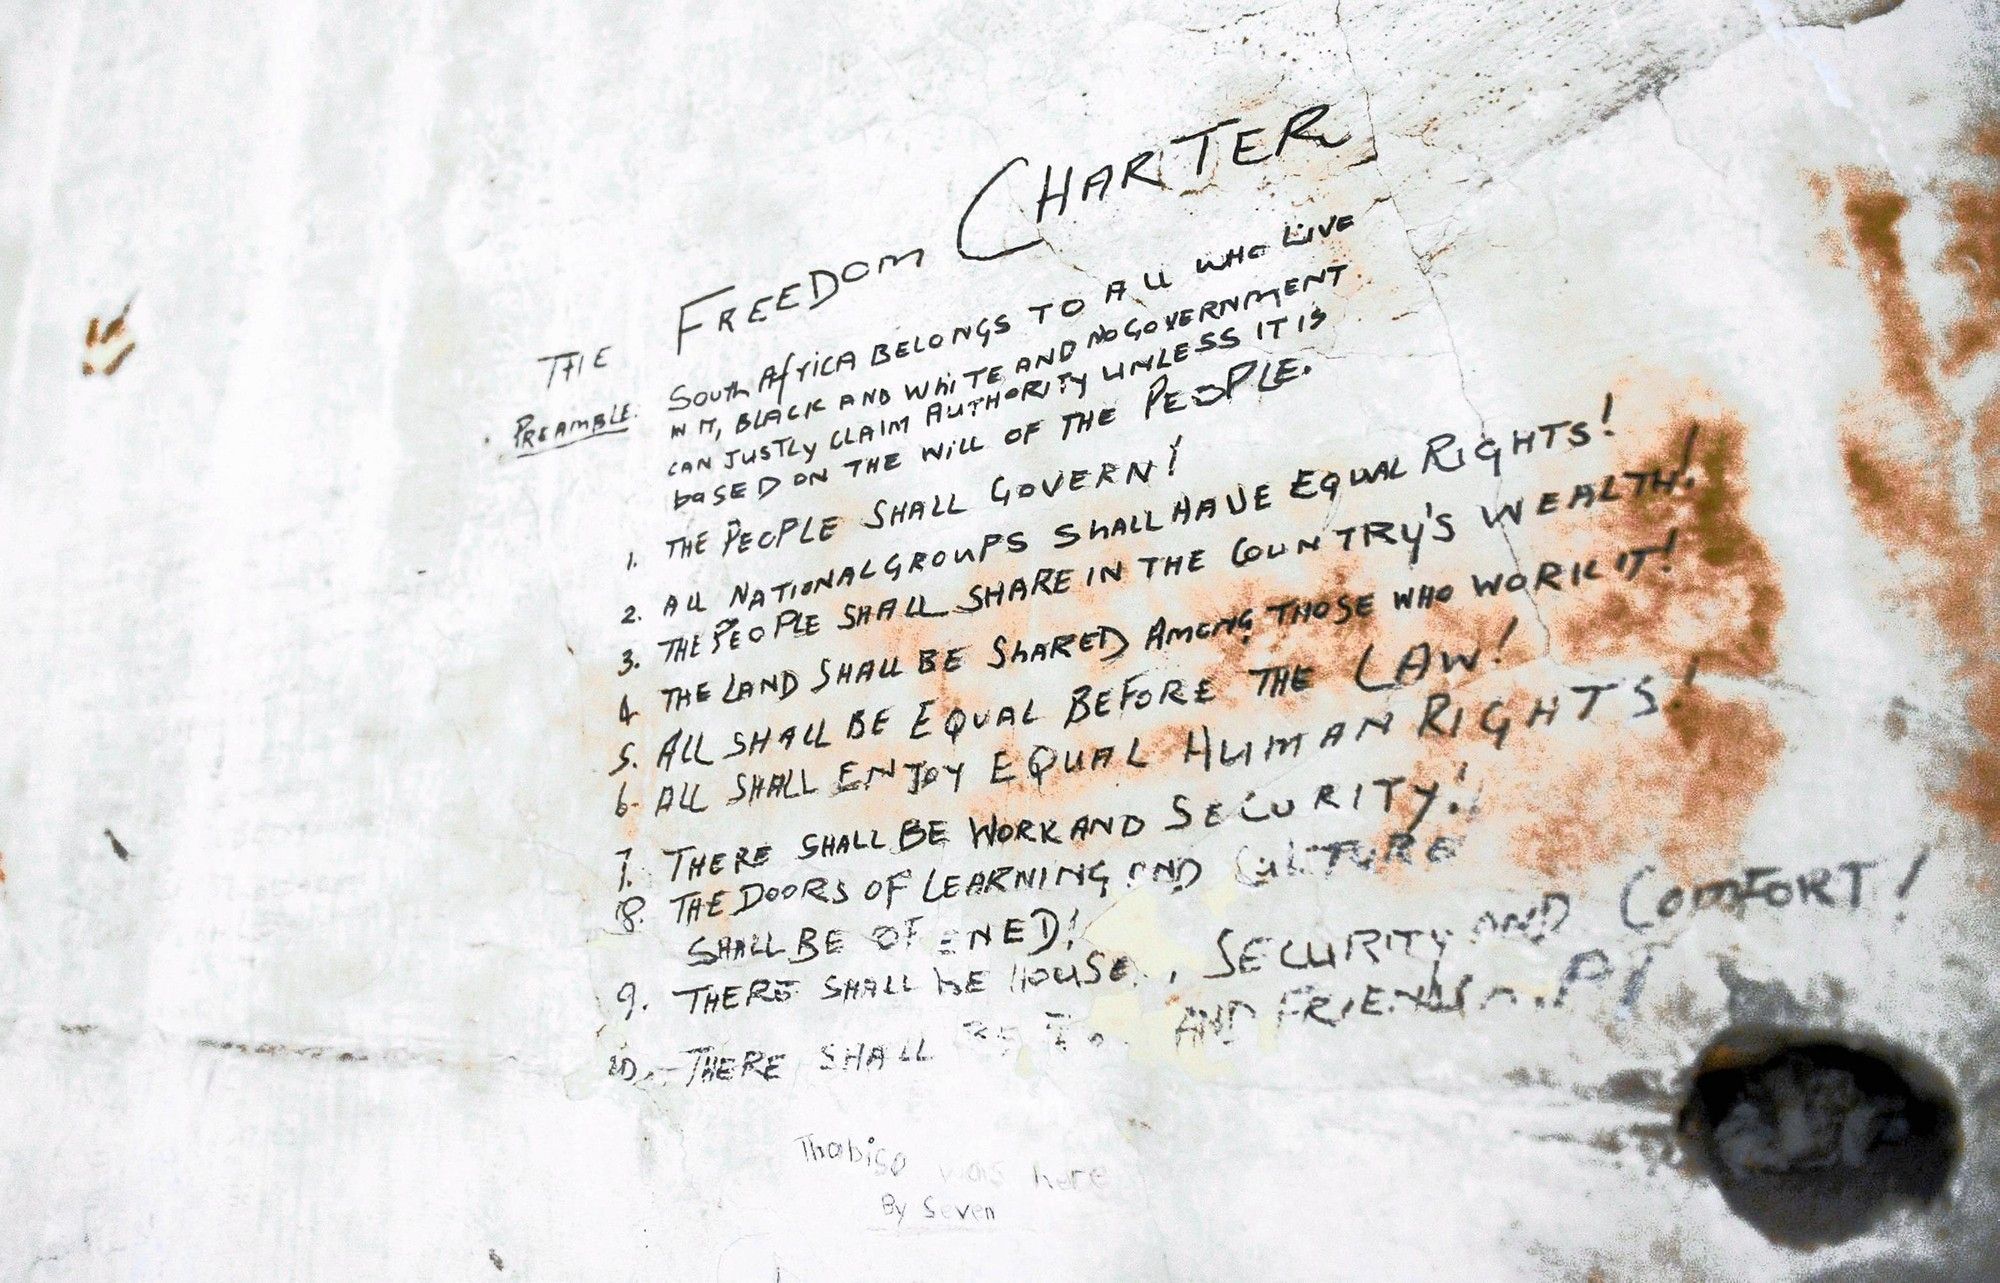 THE FREEDOM CHARTER
PREAMBLE: South Africa BELONGS TO ALL WHO LIVE
IN IT, BLACK AND WHITE AND NO GOVERNMENT
CAN JUSTLY CLAIM AUTHORITY UNLESS IT IS
baSED ON THE WILL OF THE PEOPLE.
1. THE PEOPLE SHALL GOVERN!
2. ALL NATIONAL GROUPS ShALL HAVE EQUAL RIGHTS!
3. THE PEOPLE SHALL SHARE IN THE COUNTRY'S WEALTH!
4 THE LAND SHALL BE ShARED AMONG THOSE WHO WORK IT!
5. ALL SHALL BE EQUAL BEFORE THE LAW!
6. ALL SHALL ENJOY EQUAL HUMAN RIGHTS!
7. THERE SHALL BE WORK AND SECURITY!
8. THE DOORS OF LEARNING AND CULTURE
SHALL BE OPENED!
9. THERE SHALL bE HOUSE, SECURITY AND COMFORT!
10. THERE SHALL AND
Thabiso was here
By Seven